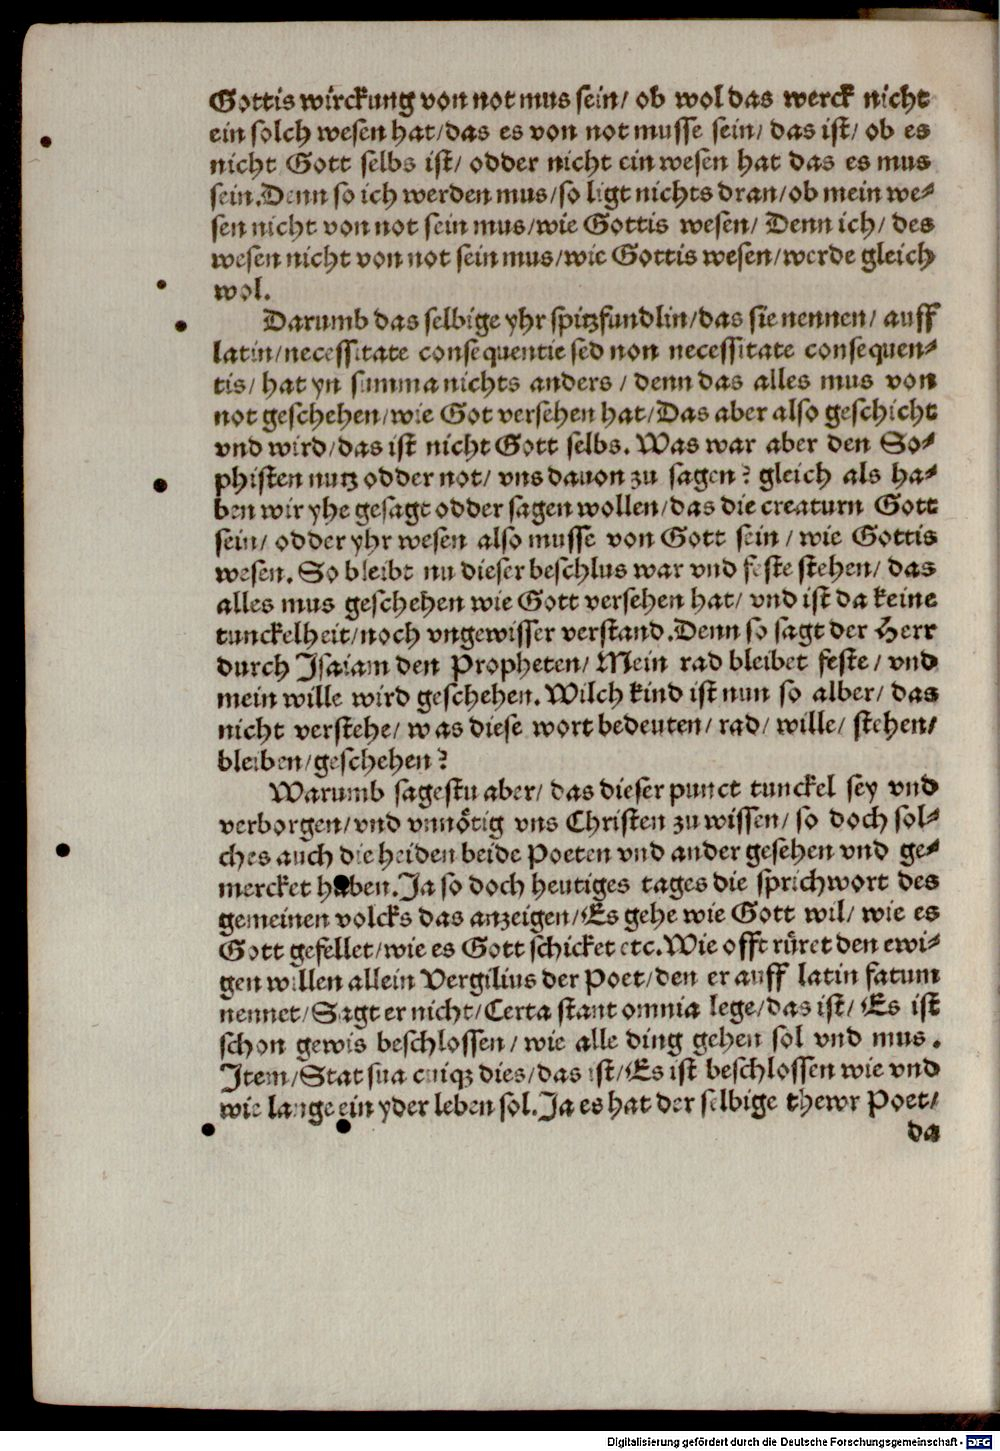 Gottis wirckung von not mus sein/ ob wol das werck nicht
ein solch wesen hat/das es von not musse sein/ das ist/ ob es
nicht Gott selbs ist/ odder nicht ein wesen hat das es mus
sein.Denn so ich werden mus/so ligt nichts dran/ob mein we⸗
sen nicht von not sein mus/wie Gottis wesen/ Denn ich/ des
wesen nicht von not sein mus/wie Gottis wesen/werde gleich
wol.
Darumb das selbige yhr spitzfundlin/das sie nennen/ auff
latin/necessitate consequentie sed non necessitate consequen⸗
tis/ hat yn summa nichts anders / denn das alles mus von
not geschehen/wie Got versehen hat/Das aber also geschicht
vnd wird/das ist nicht Gott selbs. Was war aber den So⸗
phisten nutz odder not/ vns dauon zu sagen? gleich als ha⸗
ben wir yhe gesagt odder sagen wollen/das die creaturn Gott
sein/ odder yhr wesen also musse von Gott sein / wie Gottis
wesen. So bleibt nu dieser beschlus war vnd feste stehen/ das
alles mus geschehen wie Gott versehen hat/ vnd ist da keine
tunckelheit/noch vngewisser verstand.Denn so sagt der Herr
durch Isaiam den Propheten/ Mein rad bleibet feste / vnd
mein wille wird geschehen. Wilch kind ist nun so alber/ das
nicht verstehe/ was diese wort bedeuten/ rad/ wille/ stehen/
bleiben/geschehen?
Warumb sagestu aber/ das dieser punct tunckel sey vnd
verborgen/vnd vnnötig vns Christen zu wissen/ so doch sol⸗
ches auch die heiden beide Poeten vnd ander gesehen vnd ge⸗
mercket haben.Ja so doch heutiges tages die sprichwort des
gemeinen volcks das anzeigen/Es gehe wie Gott wil/ wie es
Gott gefellet/wie es Gott schicket etc.Wie offt rüret den ewi⸗
gen willen allein Vergilius der Poet/den er auff latin fatum
nennet/Sagt er nicht/Certa stant omnia lege/das ist/ Es ist
schon gewis beschlossen/ wie alle ding gehen sol vnd mus.
Item/Stat sua cuiqz dies/das ist/Es ist beschlossen wie vnd
wie lange ein yder leben sol.Ja es hat der selbige thewr Poet/
da
Digitalisierung gefördert durch die Deutsche Forschungsgemeinschaft - DFG